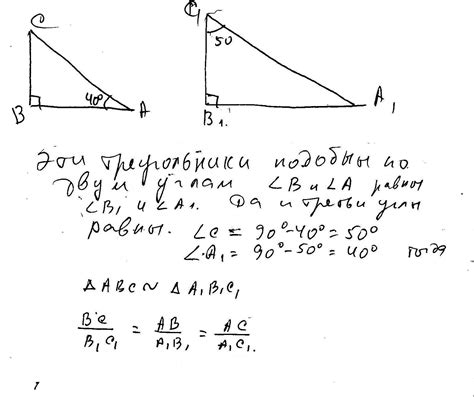 C
C₁
50
40°
B
A
B₁.
A₁
Эти треугольники подобны по
двум углам ∠B и ∠A равны
∠B₁ и ∠A₁. Да и третьи углы
равны. ∠C = 90° - 40° = 50°
∠A₁ = 90° - 50° = 40° тогда
△ABC ~ △A₁B₁C₁
BC/B₁C₁ = AB/A₁B₁ = AC/A₁C₁.